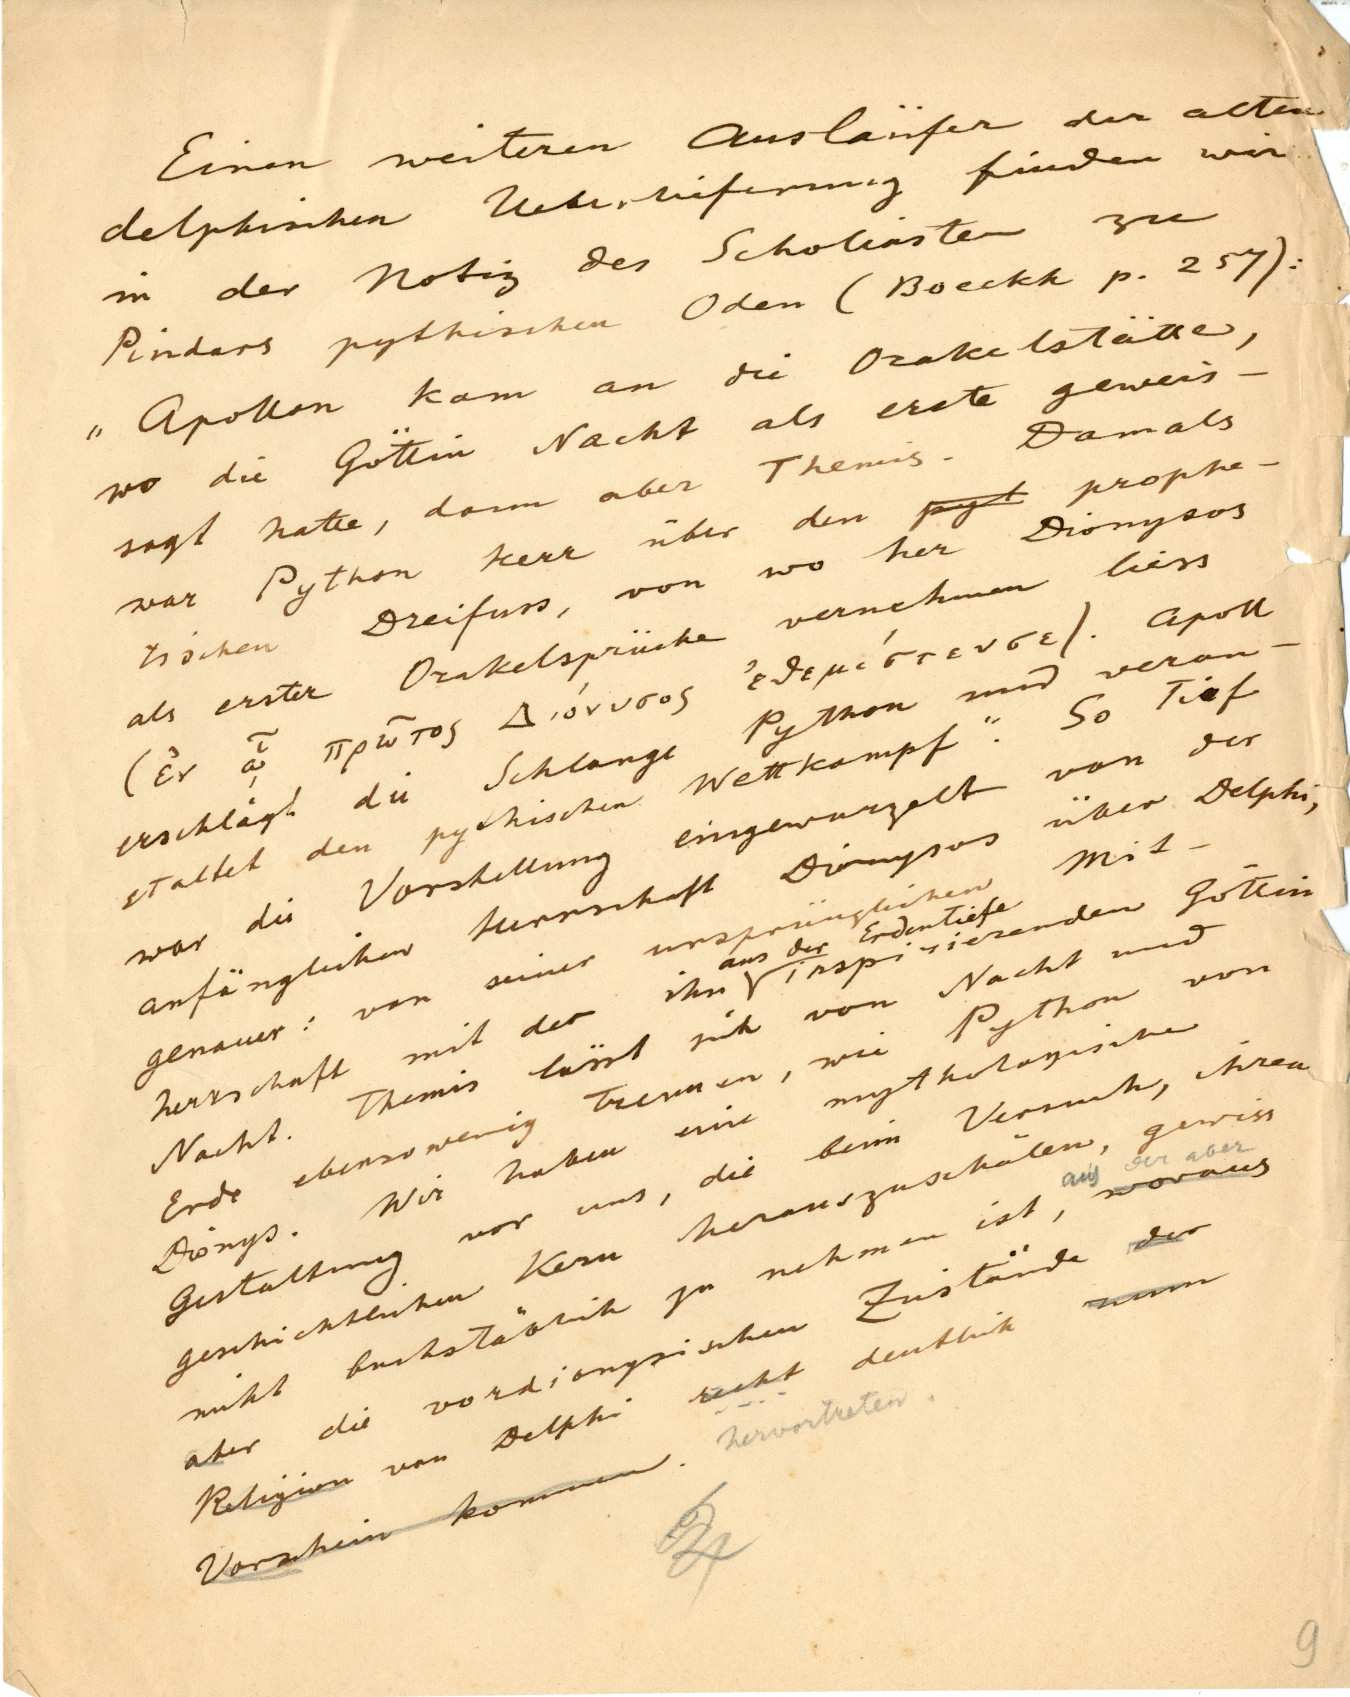 Einen weiteren Ausläufer der alten
delphischen Ueberlieferung finden wir
in der Notiz des Scholiasten zu
Pindars pythischen Oden (Boeckh p. 257):
„Apollon kam an die Orakelstätte,
wo die Göttin Nacht als erste geweis-
sagt hatte, dann aber Themis. Damals
war Python herr über den pyt prophe-
tischen Dreifuss, von wo her Dionysos
als erster Orakelsprüche vernehmen liess
(ἐν ᾧ πρῶτος Διόνυσος ἐθεμίστευσε). Apoll
erschlägt die Schlange Python und veran-
staltet den pythischen Wettkampf“. So tief
war die Vorstellung eingewurzelt von der
anfänglichen Herrschaft Dionysos über Delphi,
genauer: von seiner ursprünglichen Mit-
herrschaft mit der ihn aus der Erdentiefe inspirierenden Göttin
Nacht. Themis lässt sich von Nacht und
Erde ebensowenig trennen, wie Python von
Dionys. Wir haben eine mythologische
Gestaltung vor uns, die beim Versuch, ihren
geschichtlichen Kern herauszuschälen, gewiss
nicht buchstäblich zu nehmen ist, woraus aus der aber
aber die vordionysischen Zustände der
Religion von Delphi recht deutlich nun
Vorschein kommen. hervortreten.
9